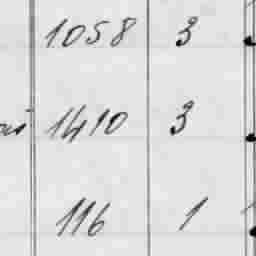 1058 3
1410 3
116 1